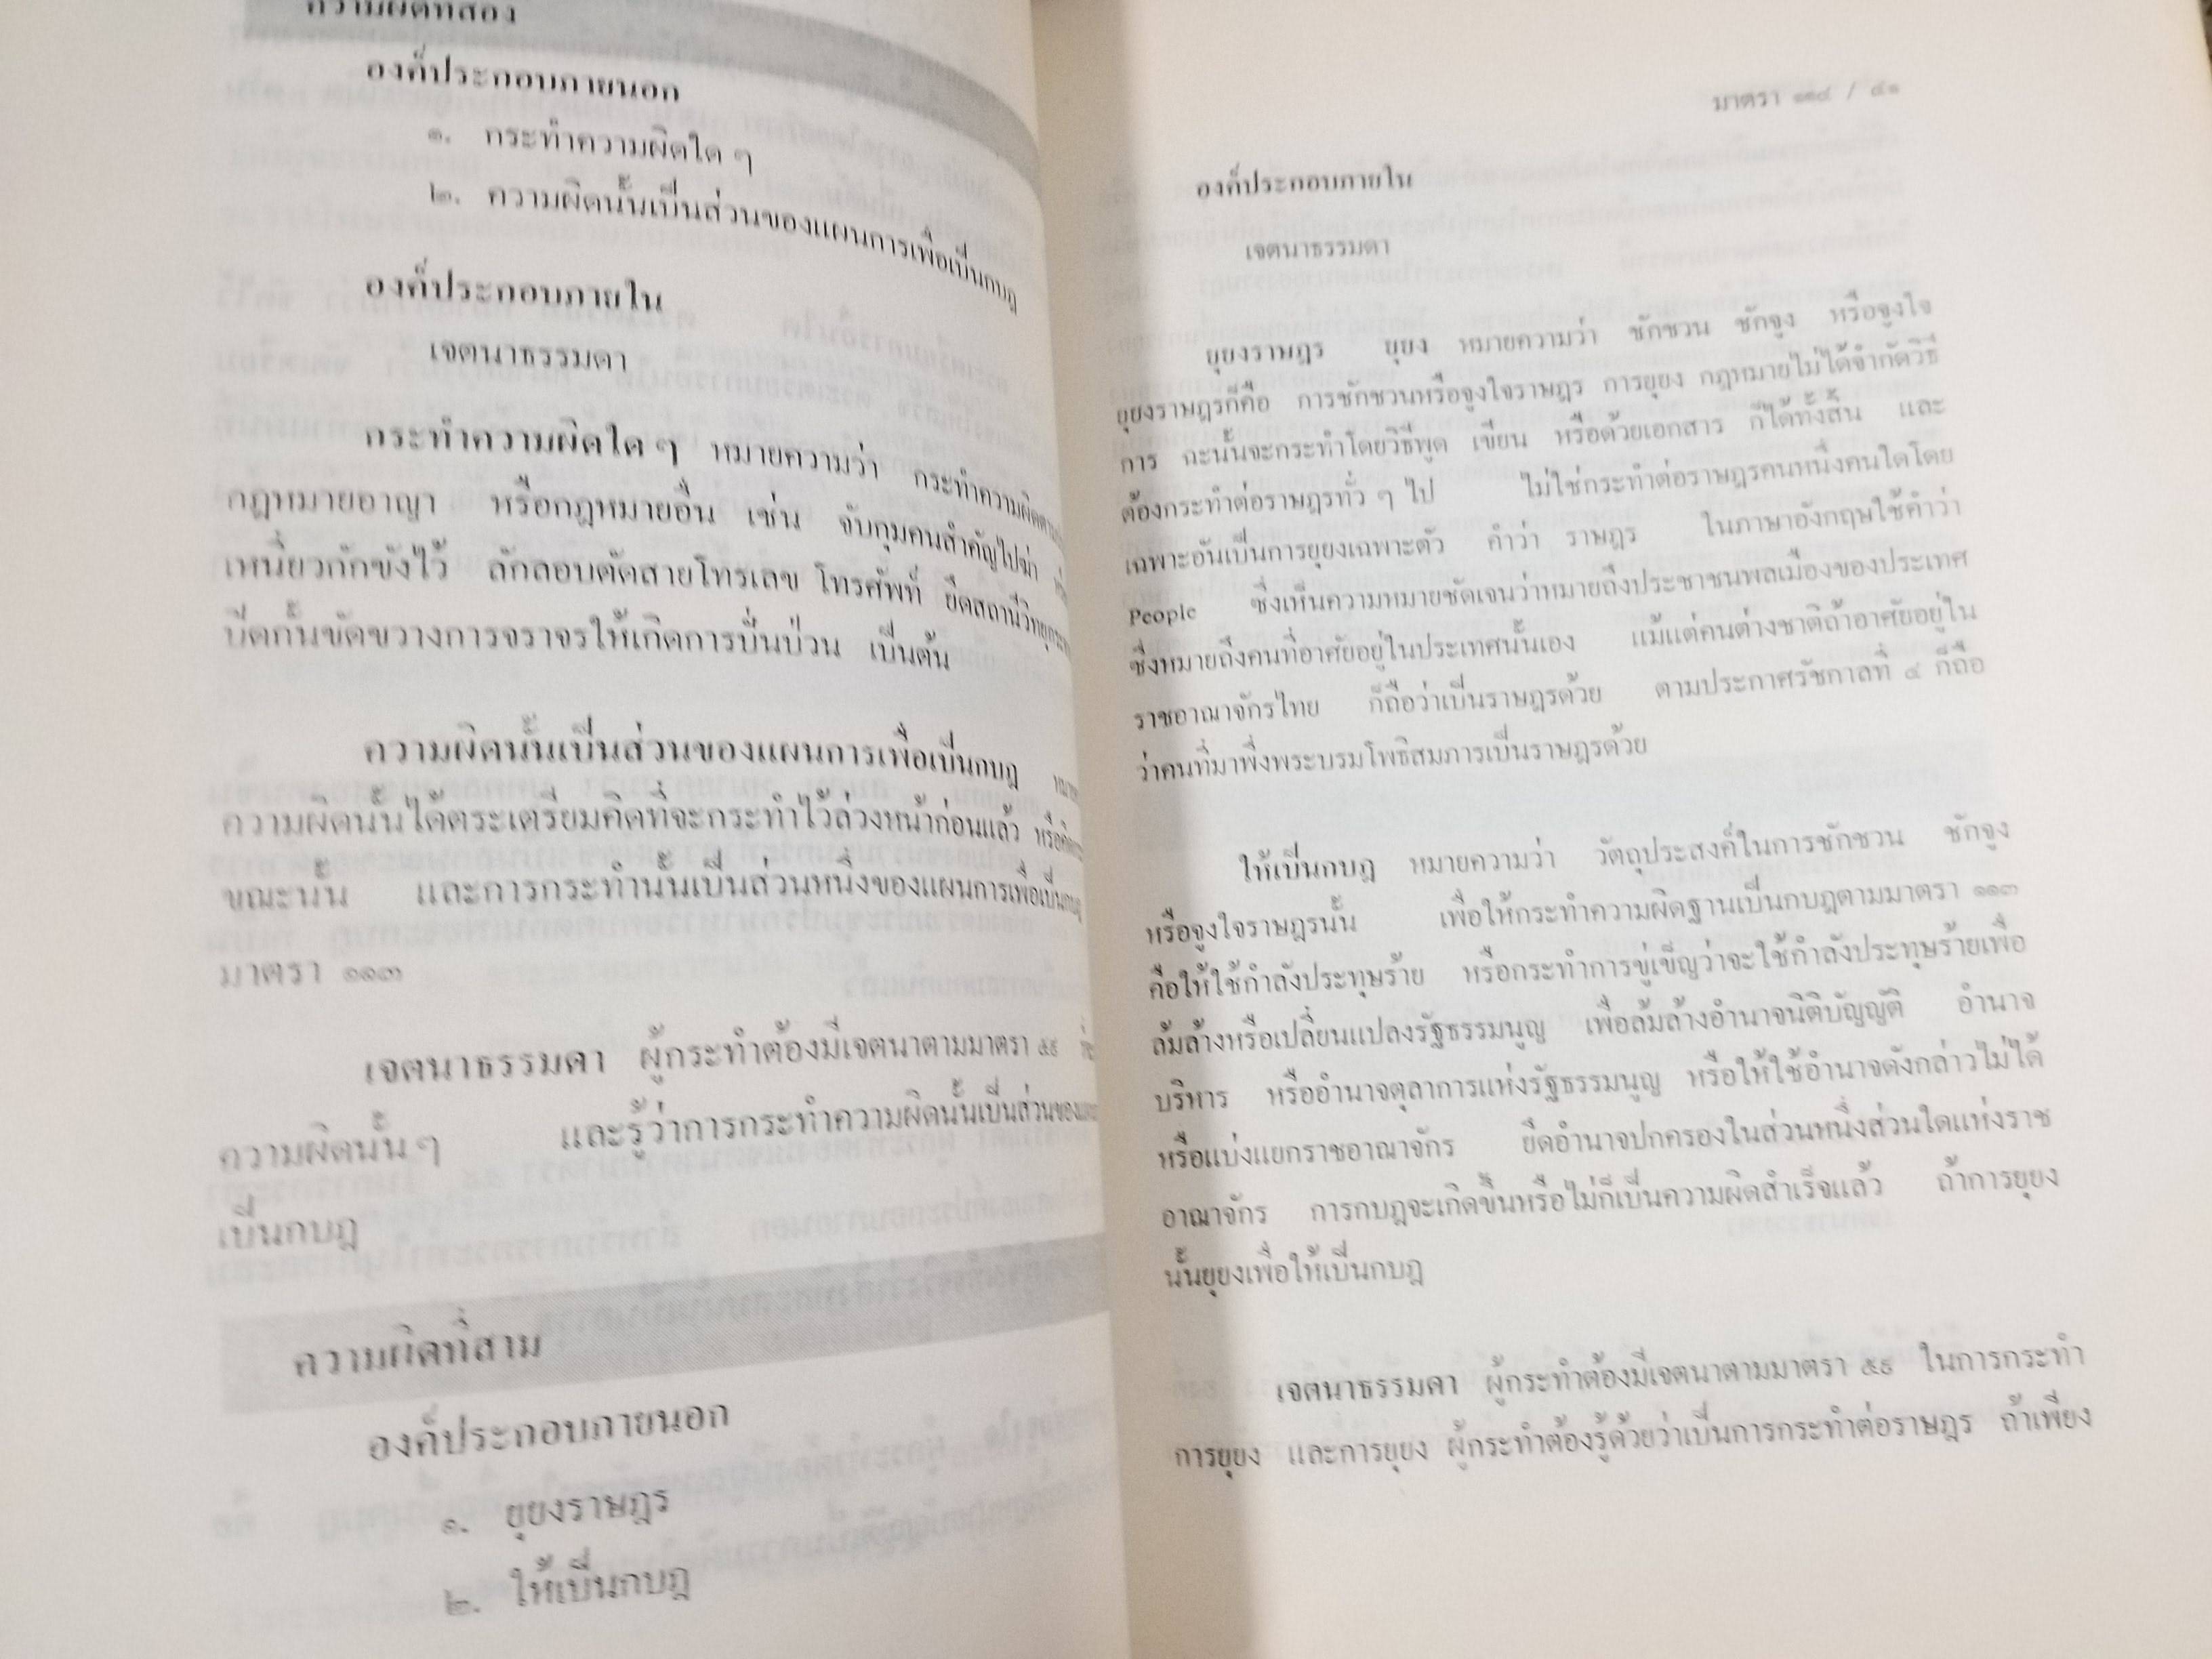 ความผิดที่สอง
องค์ประกอบภายนอก
๑. กระทำความผิดใด ๆ
๒. ความผิดนั้นเป็นส่วนของแผนการเพื่อเป็นกบฏ
องค์ประกอบภายใน
เจตนาธรรมดา
กระทำความผิดใด ๆ หมายความว่า กระทำความผิด
กฎหมายอาญา หรือกฎหมายอื่น เช่น จับกุมคนสำคัญไปฆ่า
เหนี่ยวกักขังไว้ ลักลอบตัดสายโทรเลข โทรศัพท์ ยึดสถานีวิทยุ
ปิดกั้นขัดขวางการจราจรให้เกิดการปั่นป่วน เป็นต้น
ความผิดนั้นเป็นส่วนของแผนการเพื่อเป็นกบฏ
ความผิดนั้นได้ตระเตรียมคิดที่จะกระทำไว้ล่วงหน้าก่อนแล้ว หรือ
ขณะนั้น และการกระทำนั้นเป็นส่วนหนึ่งของแผนการเพื่อเป็น
มาตรา ๑๑๓
เจตนาธรรมดา ผู้กระทำต้องมีเจตนาตามมาตรา ๕๙
ความผิดนั้น ๆ และรู้ว่าการกระทำความผิดนั้นเป็นส่วน
เป็นกบฏ
ความผิดที่สาม
องค์ประกอบภายนอก
๑. ยุยงราษฎร
๒. ให้เป็นกบฏ
มาตรา ๑๑๔ / ๔๑
องค์ประกอบภายใน
เจตนาธรรมดา
ยุยงราษฎร ยุยง หมายความว่า ชักชวน ชักจูง หรือจูงใจ
ยุยงราษฎรก็คือ การชักชวนหรือจูงใจราษฎร การยุยง กฎหมายไม่ได้จำกัดวิธี
การ ฉะนั้นจะกระทำโดยวิธีพูด เขียน หรือด้วยเอกสาร ก็ได้ทั้งสิ้น และ
ต้องกระทำต่อราษฎรทั่ว ๆ ไป ไม่ใช่กระทำต่อราษฎรคนหนึ่งคนใดโดย
เฉพาะอันเป็นการยุยงเฉพาะตัว คำว่า ราษฎร ในภาษาอังกฤษใช้คำว่า
People ซึ่งเห็นความหมายชัดเจนว่าหมายถึงประชาชนพลเมืองของประเทศ
ซึ่งหมายถึงคนที่อาศัยอยู่ในประเทศนั้นเอง แม้แต่คนต่างชาติถ้าอาศัยอยู่ใน
ราชอาณาจักรไทย ก็ถือว่าเป็นราษฎรด้วย ตามประกาศรัชกาลที่ ๔ ก็ถือ
ว่าคนที่มาพึ่งพระบรมโพธิสมภารเป็นราษฎรด้วย
ให้เป็นกบฏ หมายความว่า วัตถุประสงค์ในการชักชวน ชักจูง
หรือจูงใจราษฎรนั้น เพื่อให้กระทำความผิดฐานเป็นกบฏตามมาตรา ๑๑๓
คือให้ใช้กำลังประทุษร้าย หรือกระทำการขู่เข็ญว่าจะใช้กำลังประทุษร้ายเพื่อ
ล้มล้างหรือเปลี่ยนแปลงรัฐธรรมนูญ เพื่อล้มล้างอำนาจนิติบัญญัติ อำนาจ
บริหาร หรืออำนาจตุลาการแห่งรัฐธรรมนูญ หรือให้ใช้อำนาจดังกล่าวไม่ได้
หรือแบ่งแยกราชอาณาจักร ยึดอำนาจปกครองในส่วนหนึ่งส่วนใดแห่งราช
อาณาจักร การกบฏจะเกิดขึ้นหรือไม่ก็เป็นความผิดสำเร็จแล้ว ถ้าการยุยง
นั้นยุยงเพื่อให้เป็นกบฏ
เจตนาธรรมดา ผู้กระทำต้องมีเจตนาตามมาตรา ๕๙ ในการกระทำ
การยุยง และการยุยง ผู้กระทำต้องรู้ด้วยว่าเป็นการกระทำต่อราษฎร ถ้าเพียง